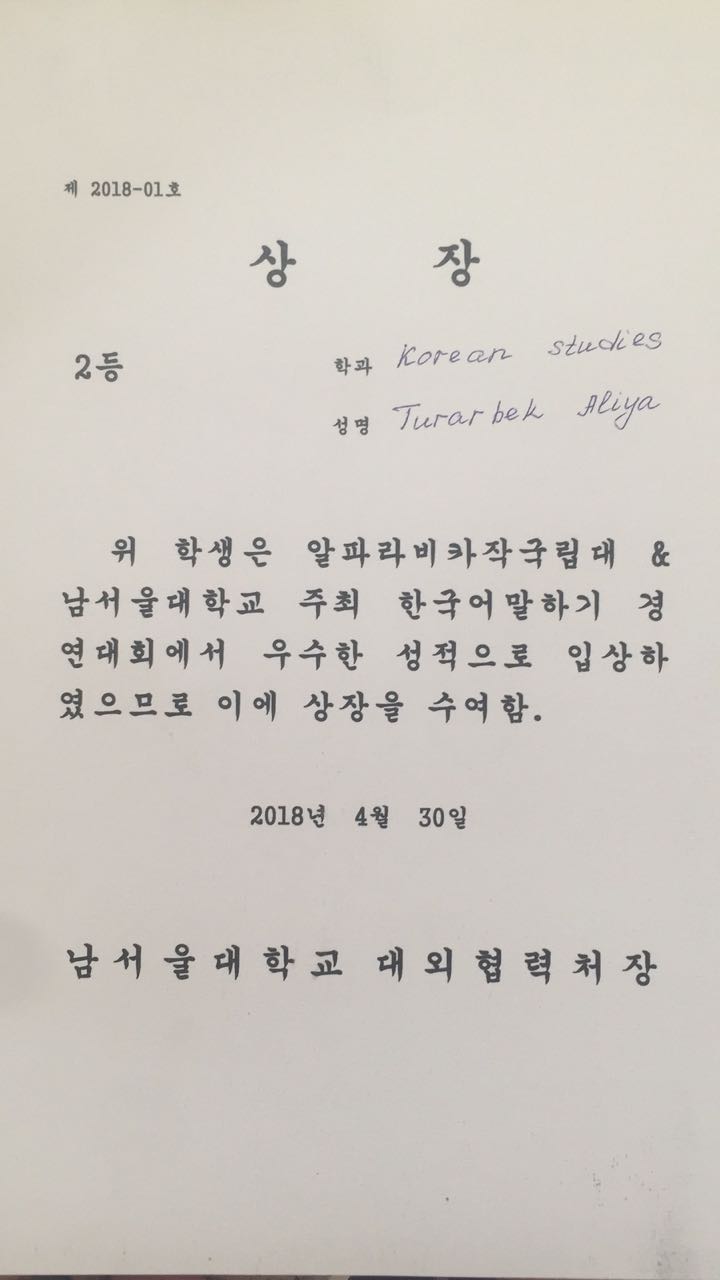 제 2018-01호
상 장
2등
학과 Korean studies
성명 Turarbek Aliya
위 학생은 알파라비카작국립대 &
남서울대학교 주최 한국어말하기 경
연대회에서 우수한 성적으로 입상하
였으므로 이에 상장을 수여함.
2018년 4월 30일
남서울대학교 대외협력처장